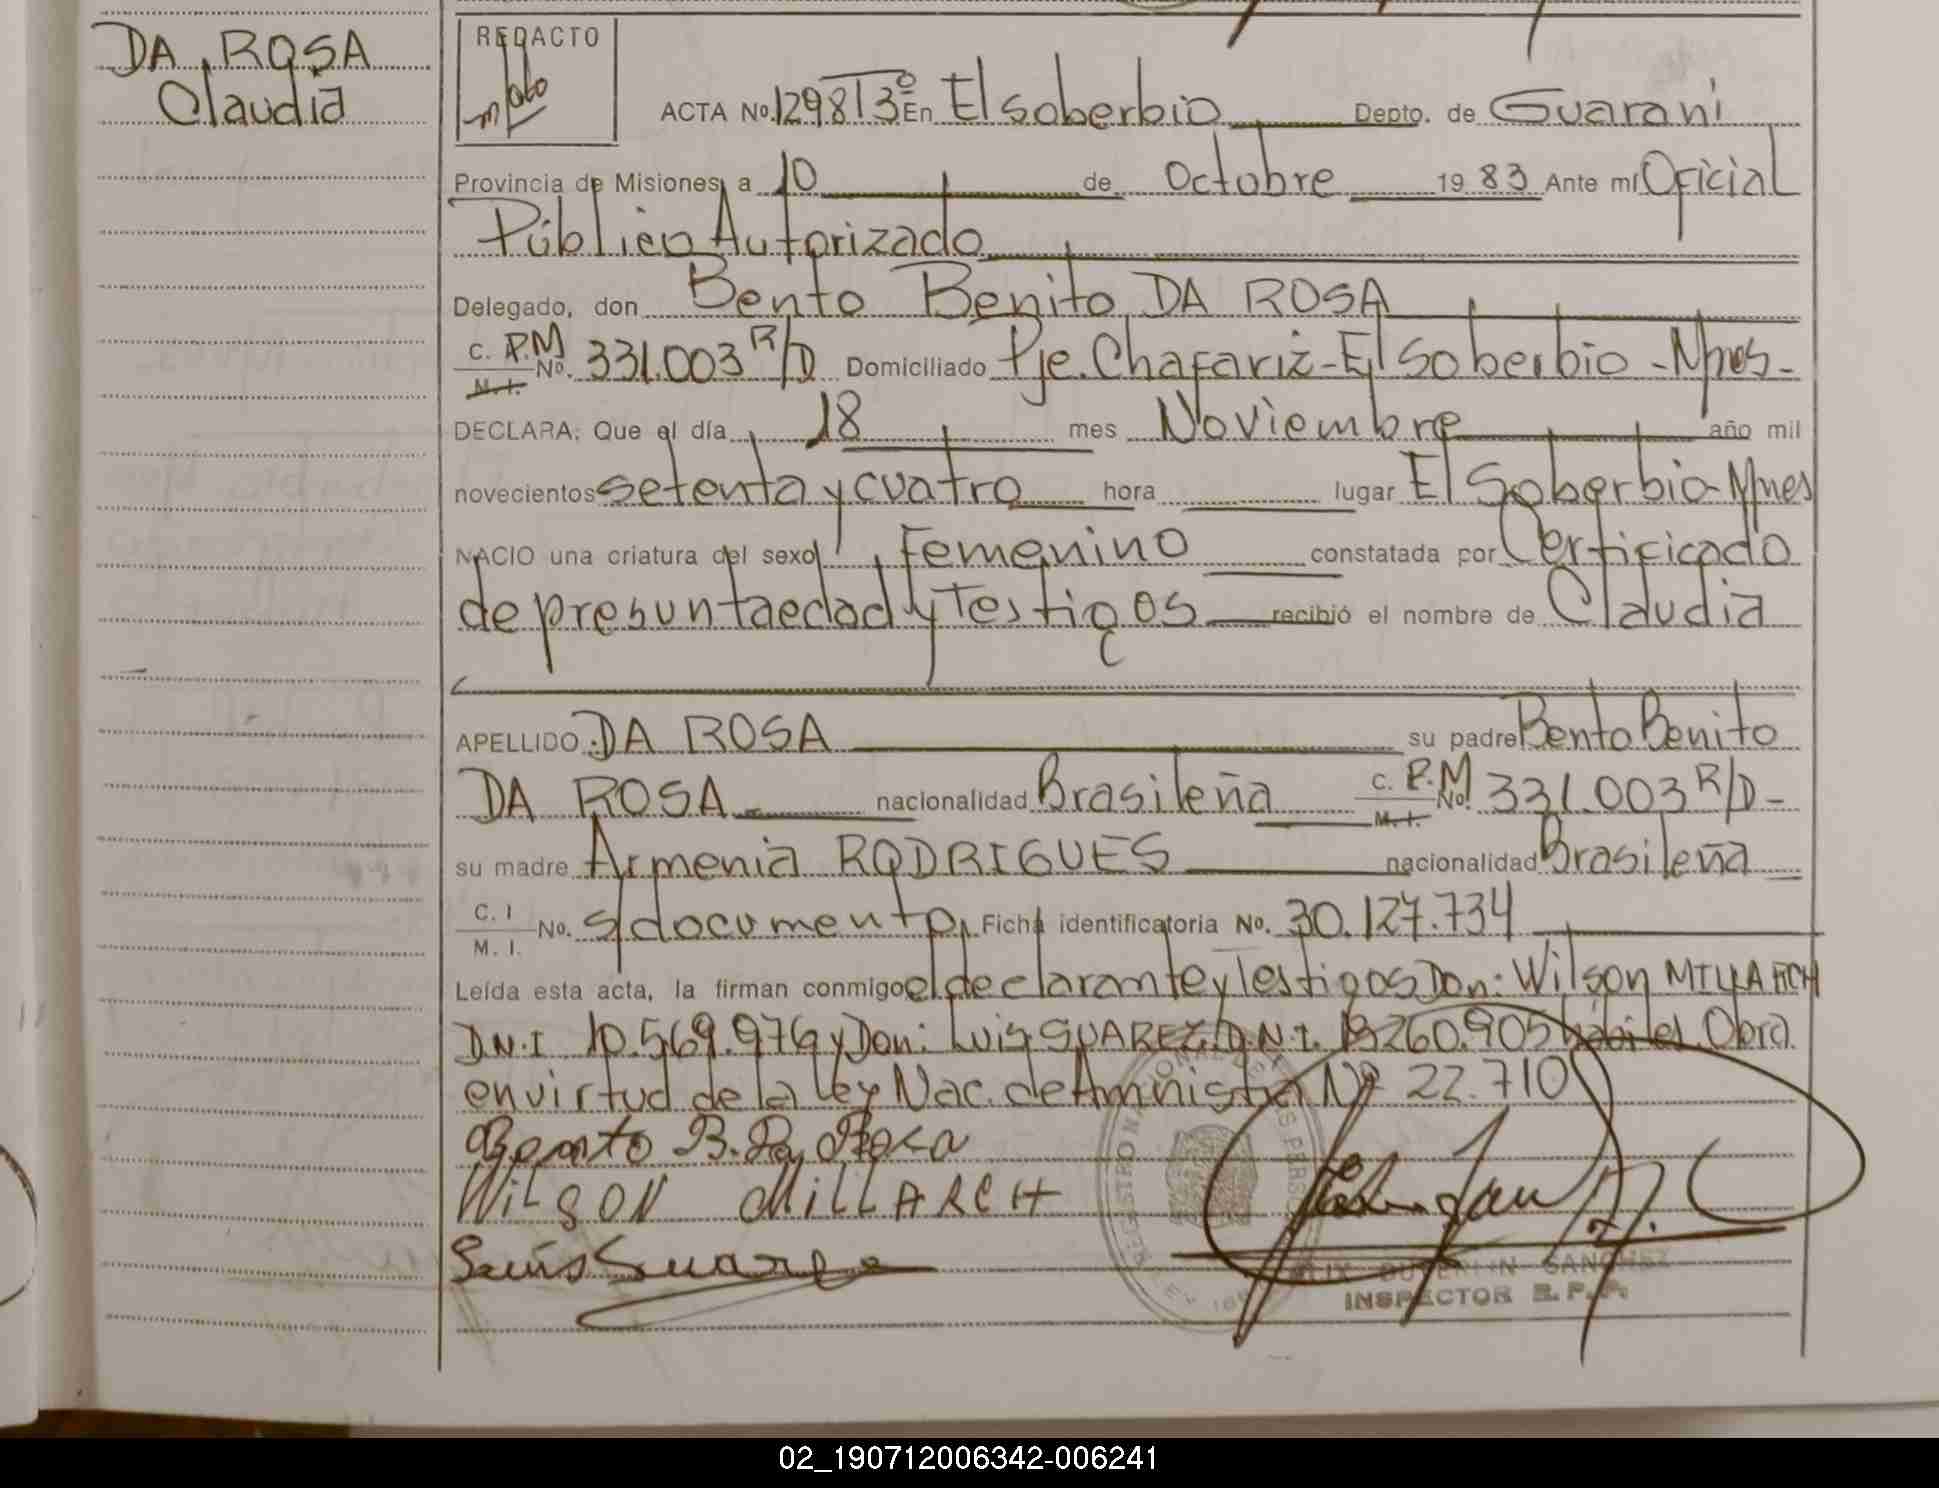 DA ROSA
Claudia
REDACTO
ACTA No. 1298 T3º En El soberbio Depto. de Guarani
Provincia de Misiones, a 10 de Octubre 19 83 Ante mí Oficial
Público Autorizado
Delegado, don Bento Benito DA ROSA
C. P.M No. 331.003 R/D Domiciliado Pje. Chafariz-El Soberbio -Mnes-
M. I.
DECLARA: Que el día 18 mes Noviembre año mil
novecientos setenta y cuatro hora lugar El Soberbio-Mnes
NACIO una criatura del sexo femenino constatada por Certificado
de presunta edad y Testigos recibió el nombre de Claudia
APELLIDO DA ROSA su padre Bento Benito
DA ROSA nacionalidad Brasileña C. P.M No. 331.003 R/D-
M. I.
su madre Armenia RODRIGUES nacionalidad Brasileña
C. I
M. I. No. s/documento, Ficha identificatoria No. 30.127.734
Leída esta acta, la firman conmigo el declarante y Testigos Don: Wilson MILLARCH
D.N.I 10.569.976 y Don: Luis SUAREZ, D.N.I. 260.905 habiles. Obra
en virtud de la Ley Nac. de Amnistia Nº 22.710
Bento B. Da Rosa
WILSON MILLARCH
Luis Suarez
SANCHEZ
INSPECTOR R. P. P.
02_190712006342-006241